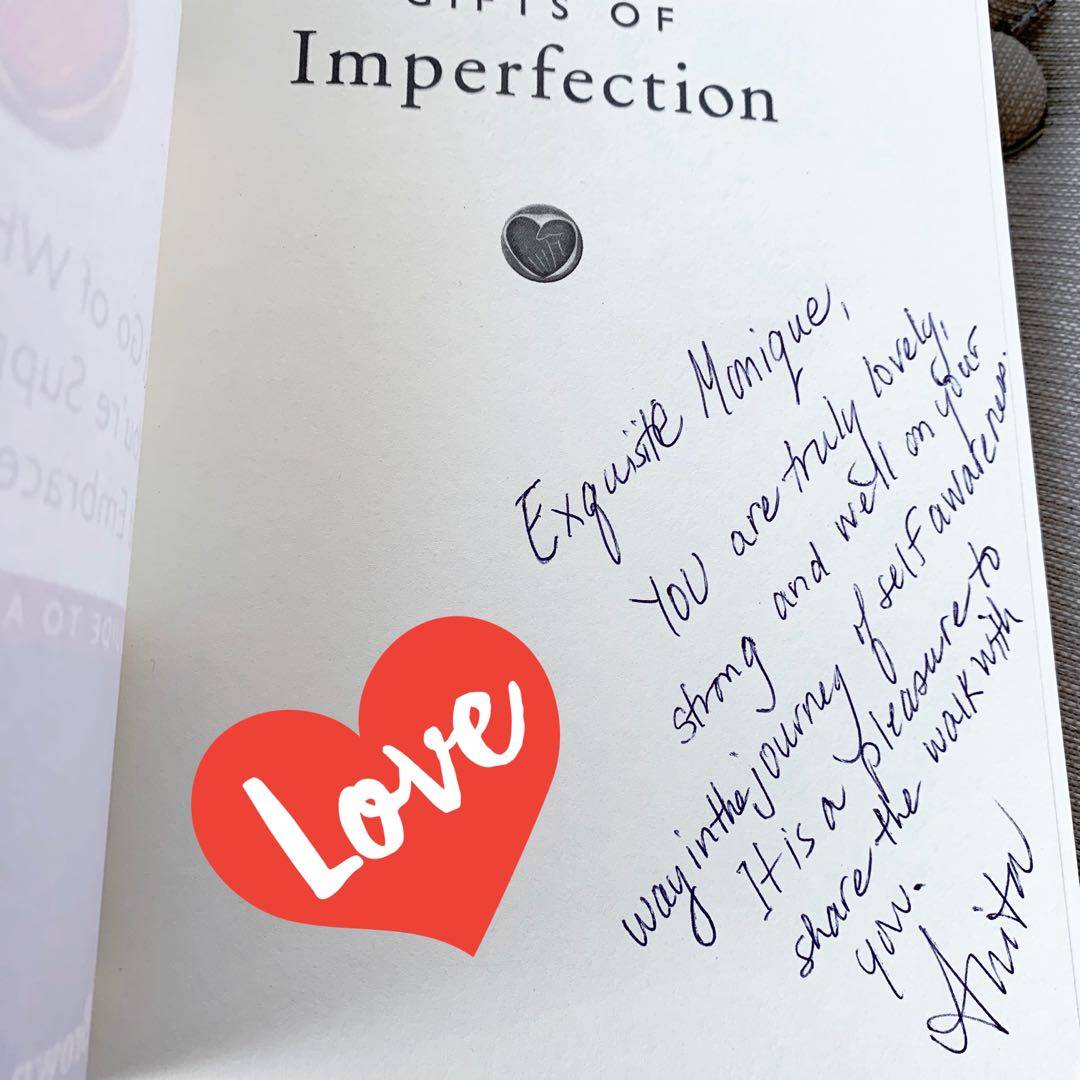 GIFTS OF
Imperfection
Exquisite Monique,
You are truly lovely,
strong and well on your
way in the journey of self awareness.
It is a pleasure to
share the walk with
you.
Anita
Love
Go of Wh
ou're Supp
Embrace
IDE TO A